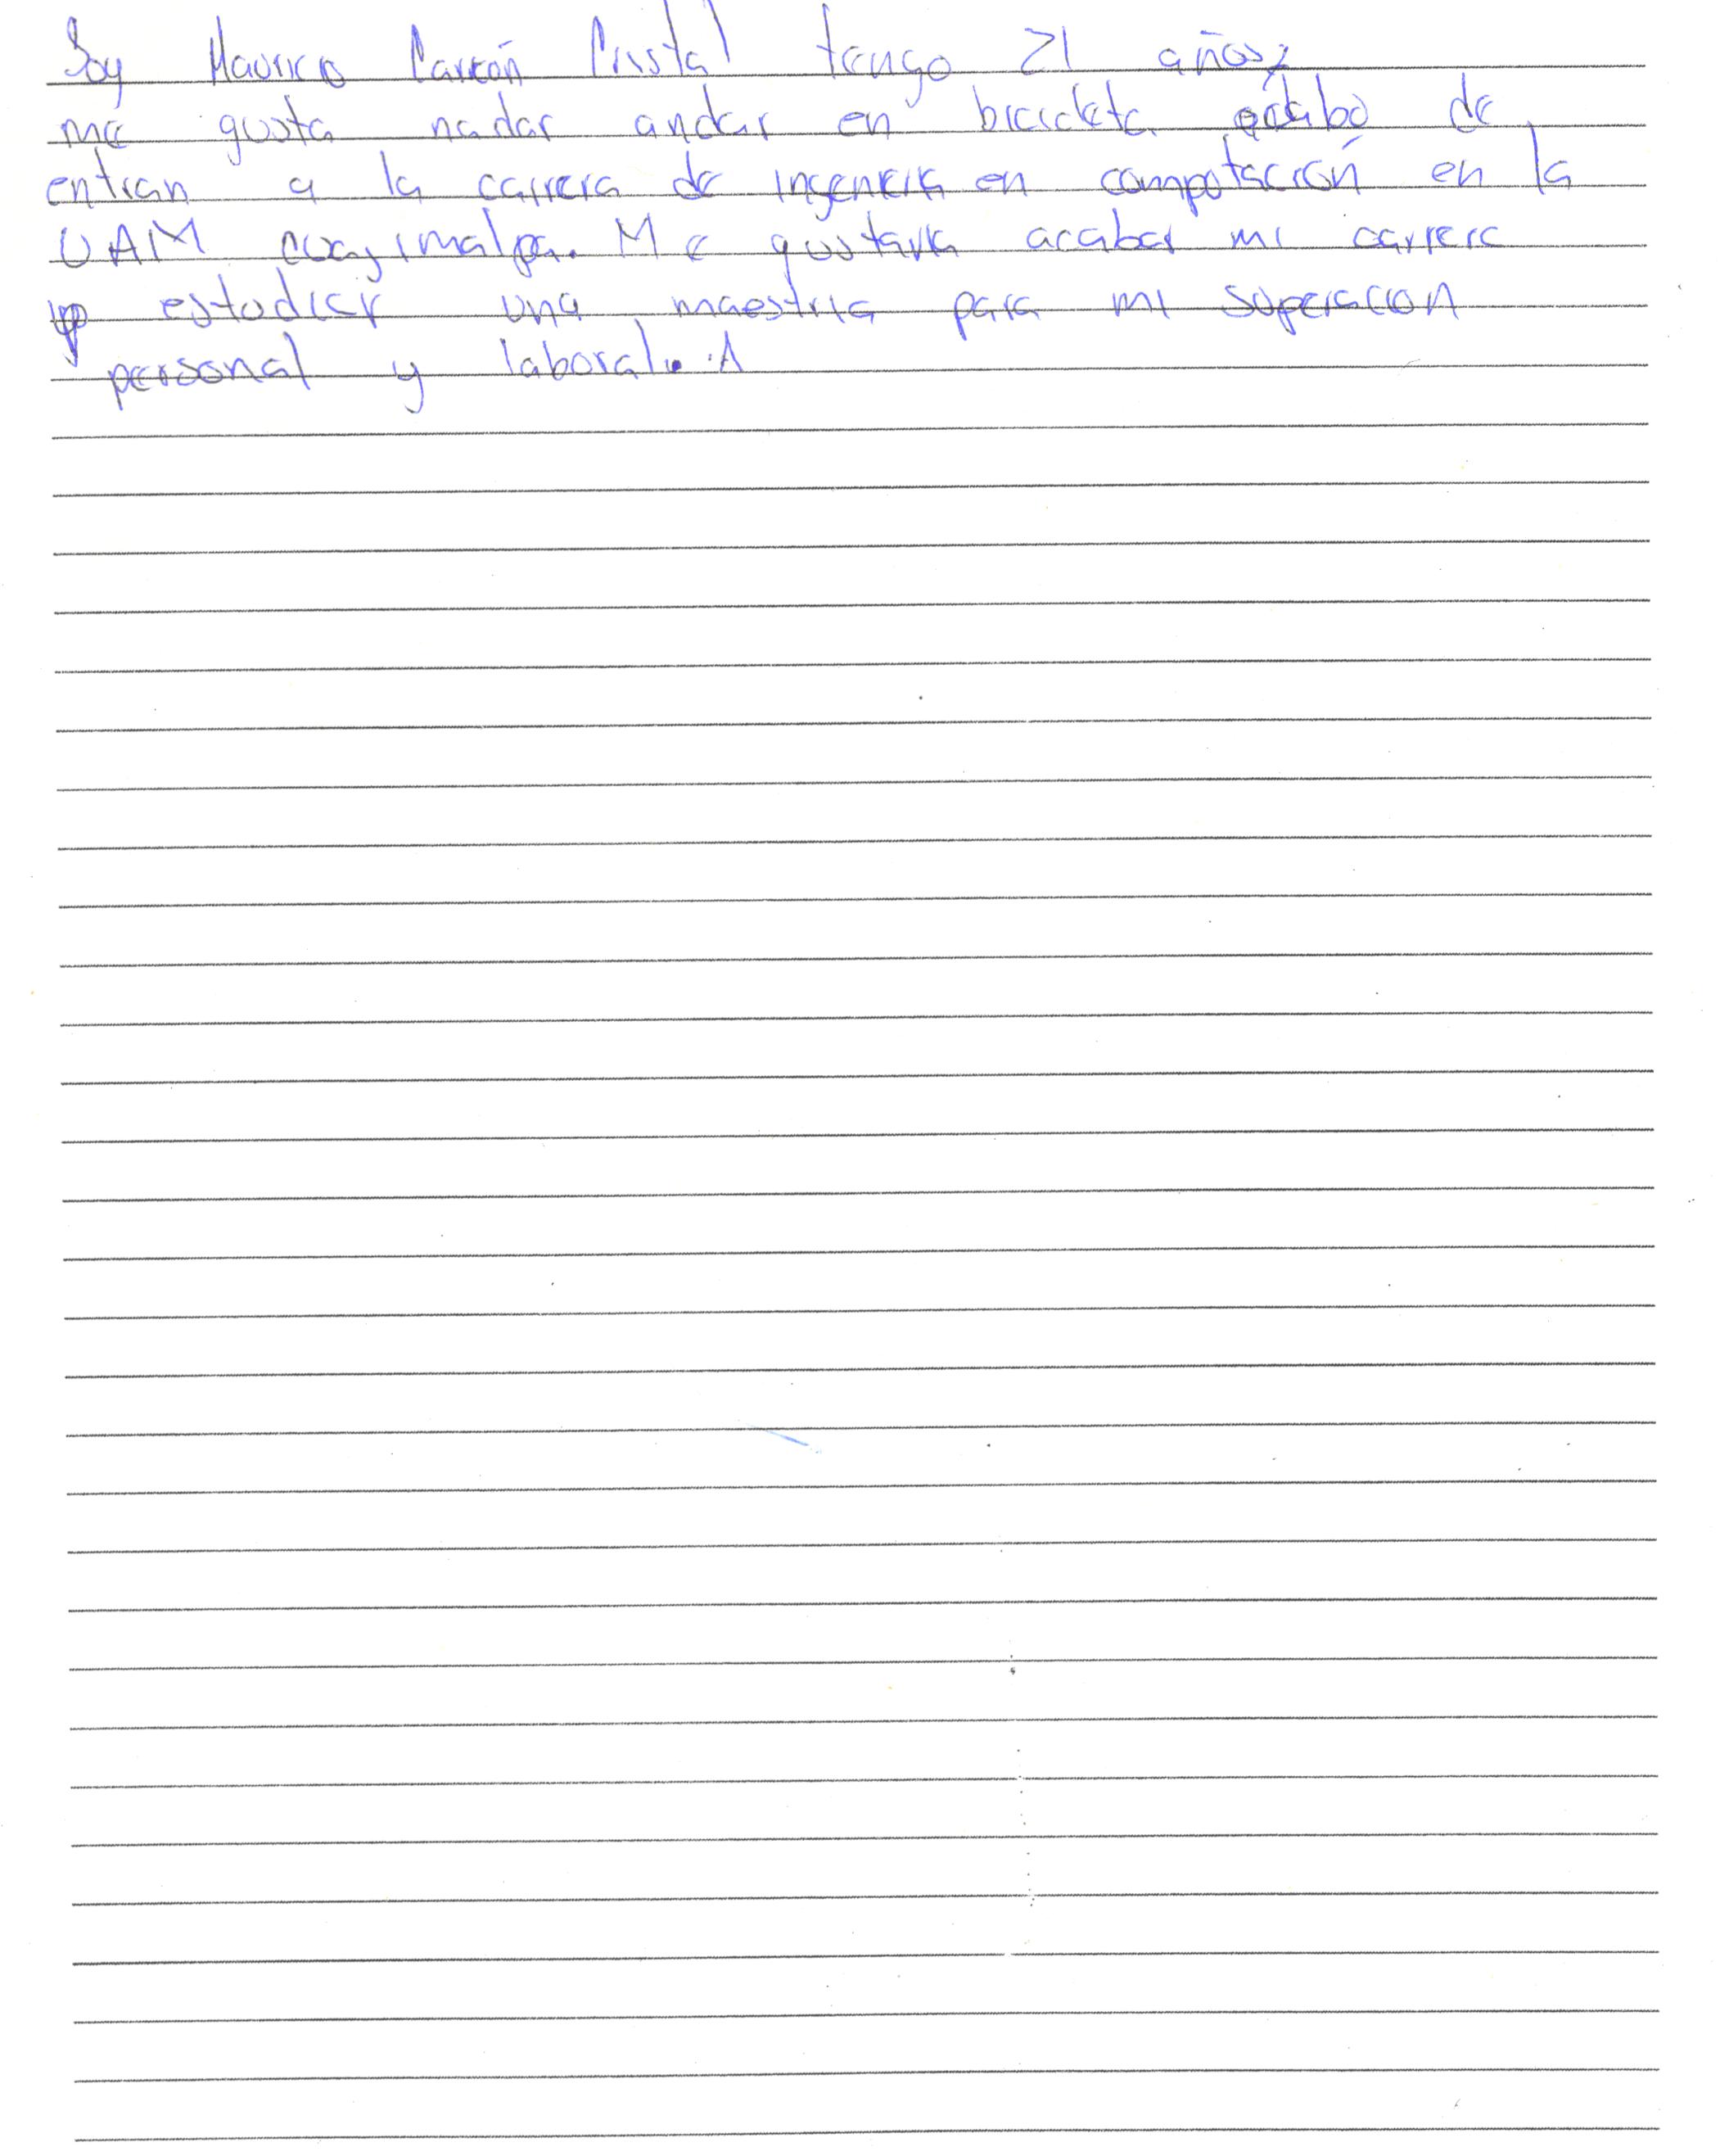 Soy Mauricio Carreón Cristal tengo 21 años,
me gusta nadar andar en bicicleta acabo de
entran a la carrera de ingenieria en computación en la
UAM cuajimalpa. Me gustaria acabar mi carrera
estudiar una maestria para mi superacion
personal y laboral.